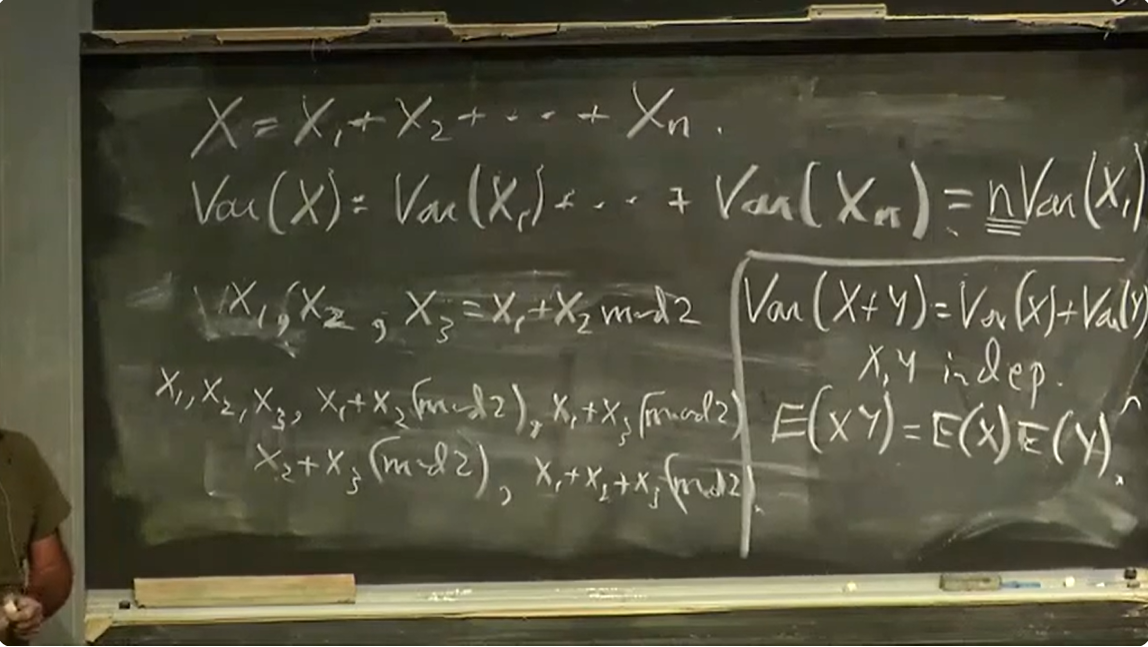 X = X₁ + X₂ + ··· + Xₙ.
Var(X) = Var(X₁) + ··· + Var(Xₙ) = nVar(X₁)
X₁, X₂, X₃ = X₁ + X₂ mod 2
X₁, X₂, X₃, X₁ + X₂ (mod 2), X₁ + X₃ (mod 2)
X₂ + X₃ (mod 2), X₁ + X₂ + X₃ (mod 2).
Var(X+Y) = Var(X) + Var(Y)
X, Y indep.
E(XY) = E(X) E(Y).